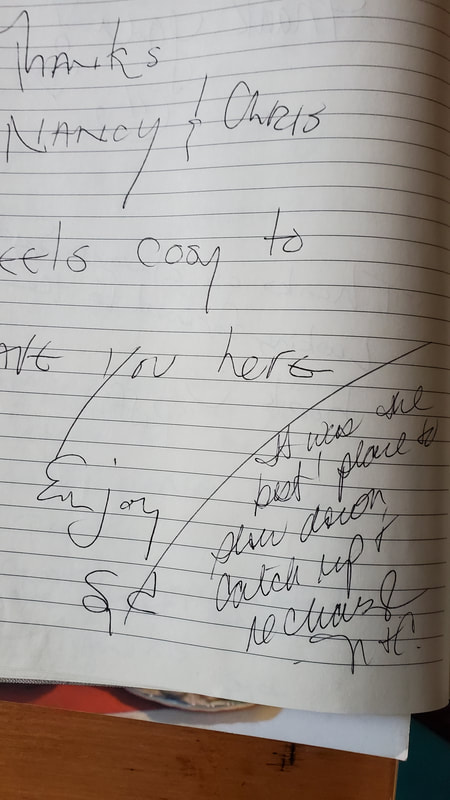 Thanks
NANCY & Chris
eels cosy to
ave you here
Enjoy
It was the
best place to
slow down,
catch up &
recharge
N+C.